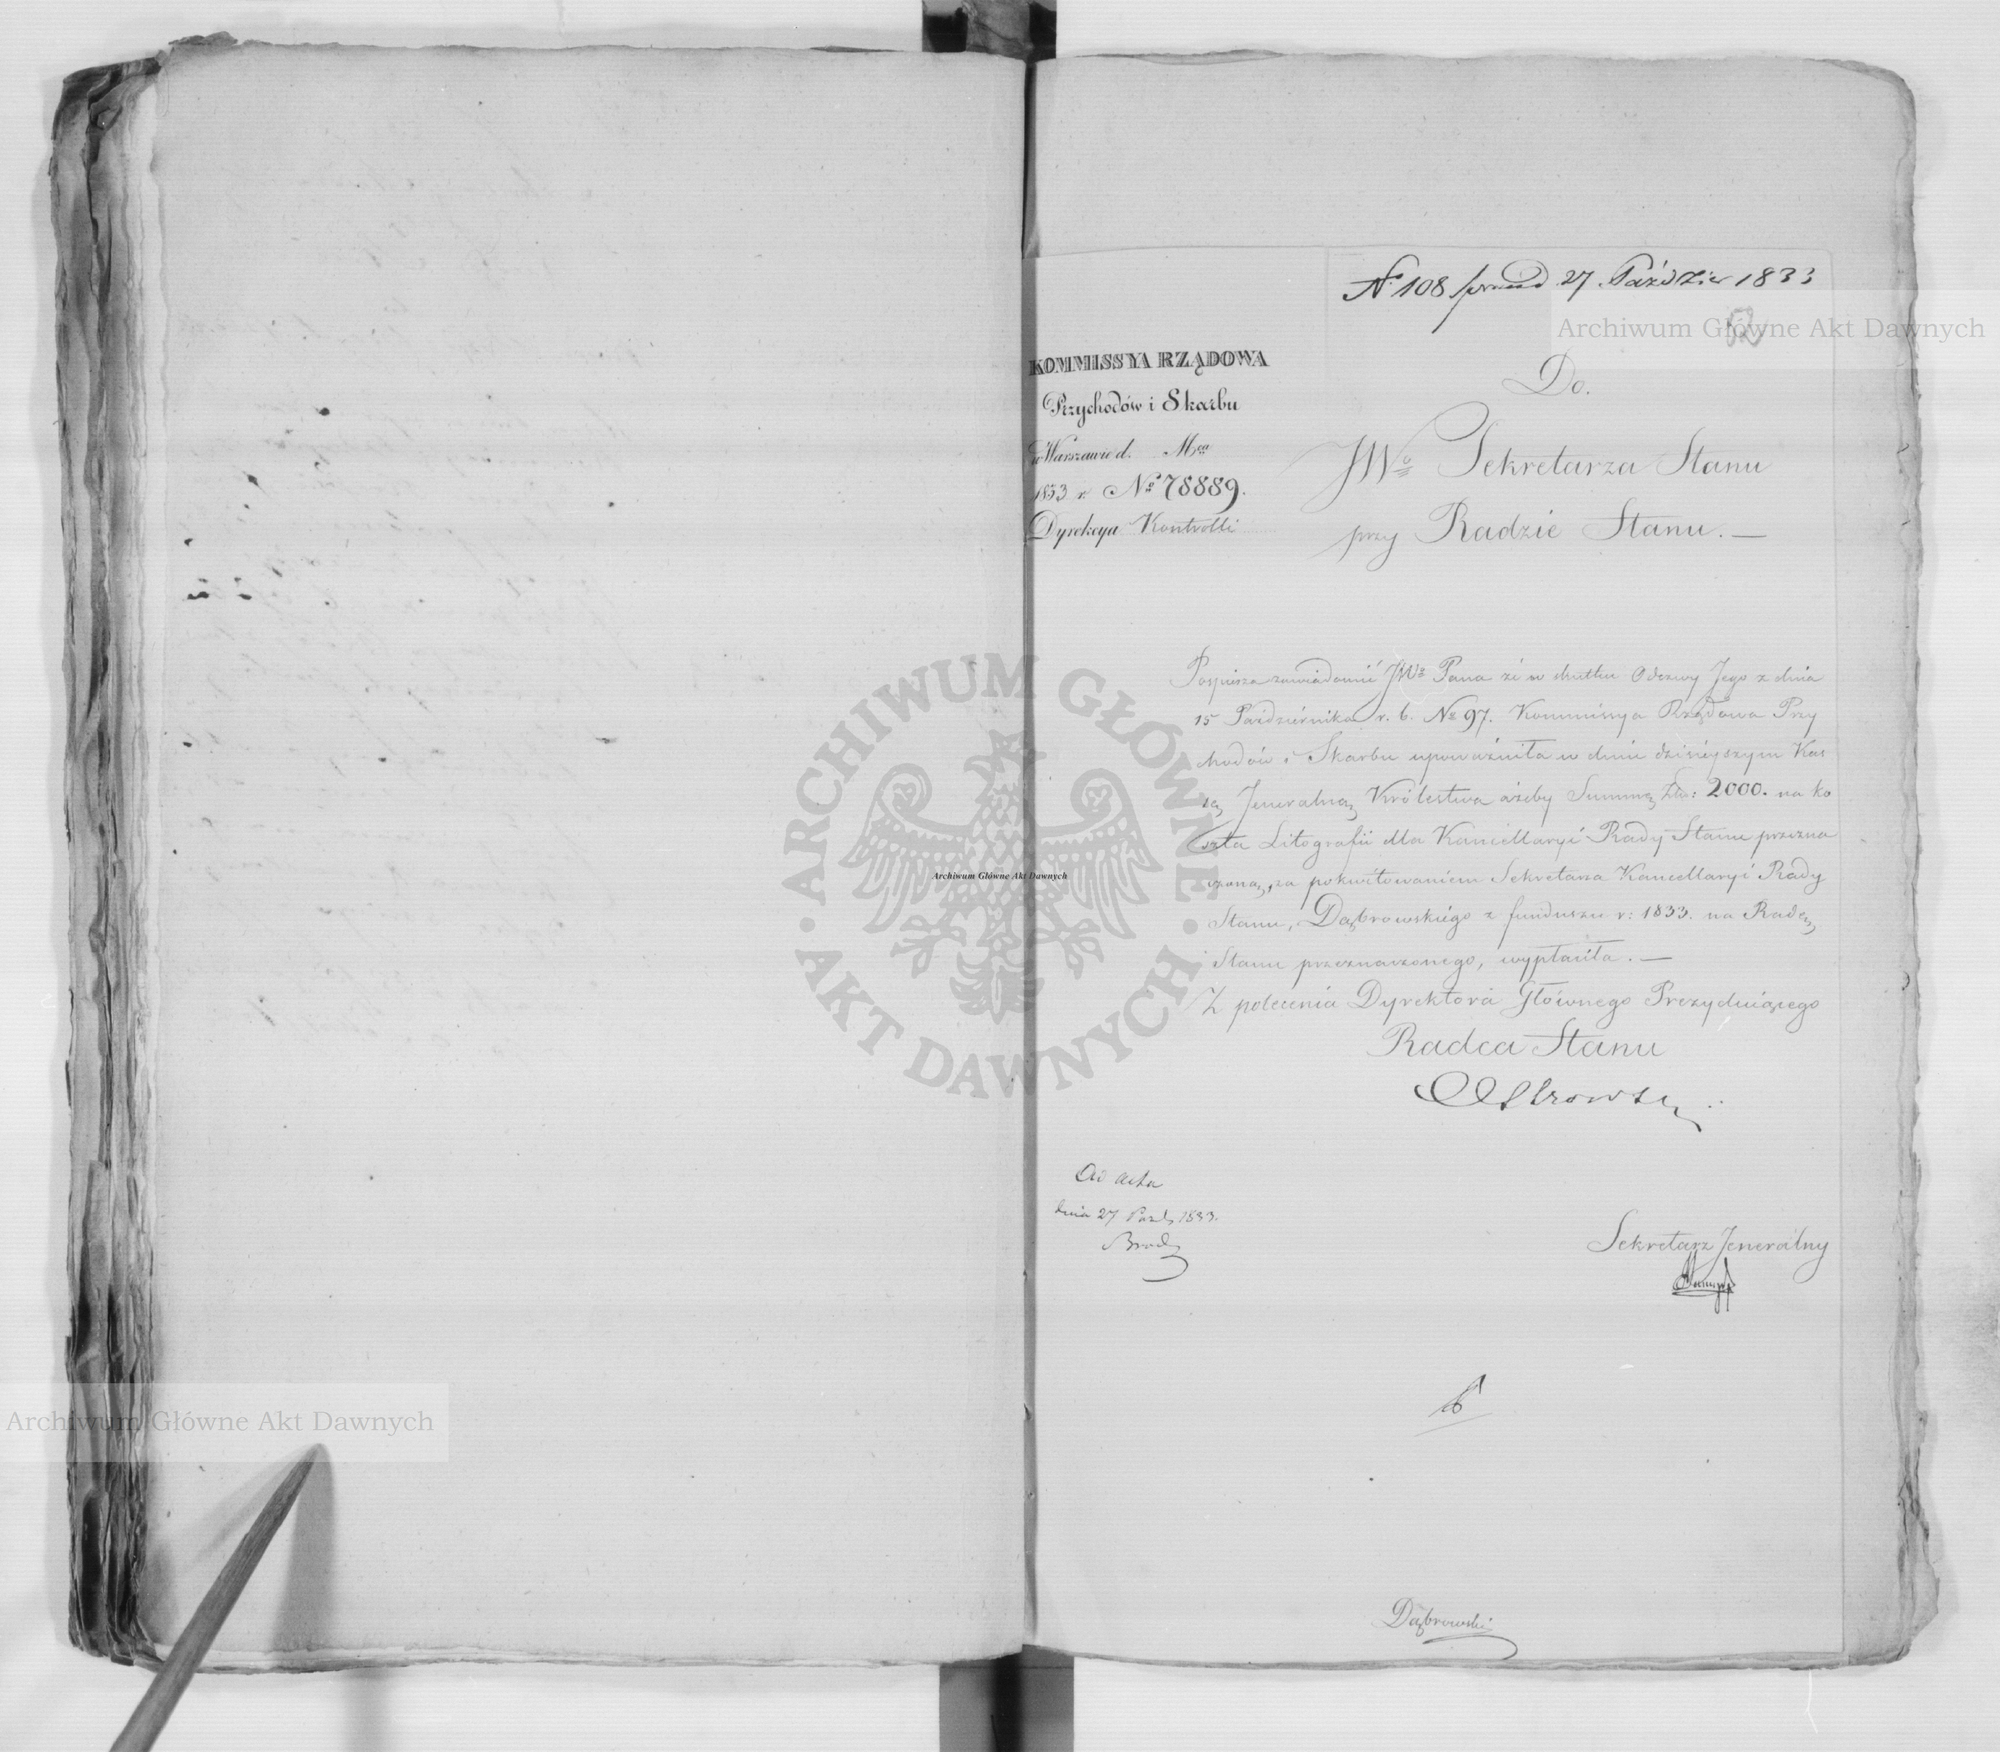 N. 108 praes d 27. Paździer 1833
52
KOMMISSYA RZĄDOWA
Przychodów i Skarbu
w Warszawie d. Mca
1833 r. No 78889.
Dyrekcya Kontrolli
Do.
JWo Sekretarza Stanu
przy Radzie Stanu. —
Pospiesza zawiadomić JWo Pana że w skutku Odezwy Jego z dnia
15 Października r. b. No 97. Kommissya Rządowa Przy
chodów i Skarbu upoważniła w dniu dzisiéyszym Kas
sę Jeneralną Królestwa ażeby Summę Złp: 2000. na ko
szta Litografii dla Kancellaryi Rady Stanu przezna
czoną, za pokwitowaniem Sekretarza Kancellaryi Rady
Stanu, Dąbrowskiégo z funduszu r: 1833. na Radę
Stanu przeznaczonego, wypłaciła. —
Z polecenia Dyrektora Głównego Prezyduiącego
Radca Stanu
Ad acta
dnia 27 Pazd 1833.
Sekretarz Jeneralny
Dąbrowski
ARCHIWUM GŁÓWNE AKT DAWNYCH
Archiwum Główne Akt Dawnych
Archiwum Główne Akt Dawnych
Archiwum Główne Akt Dawnych